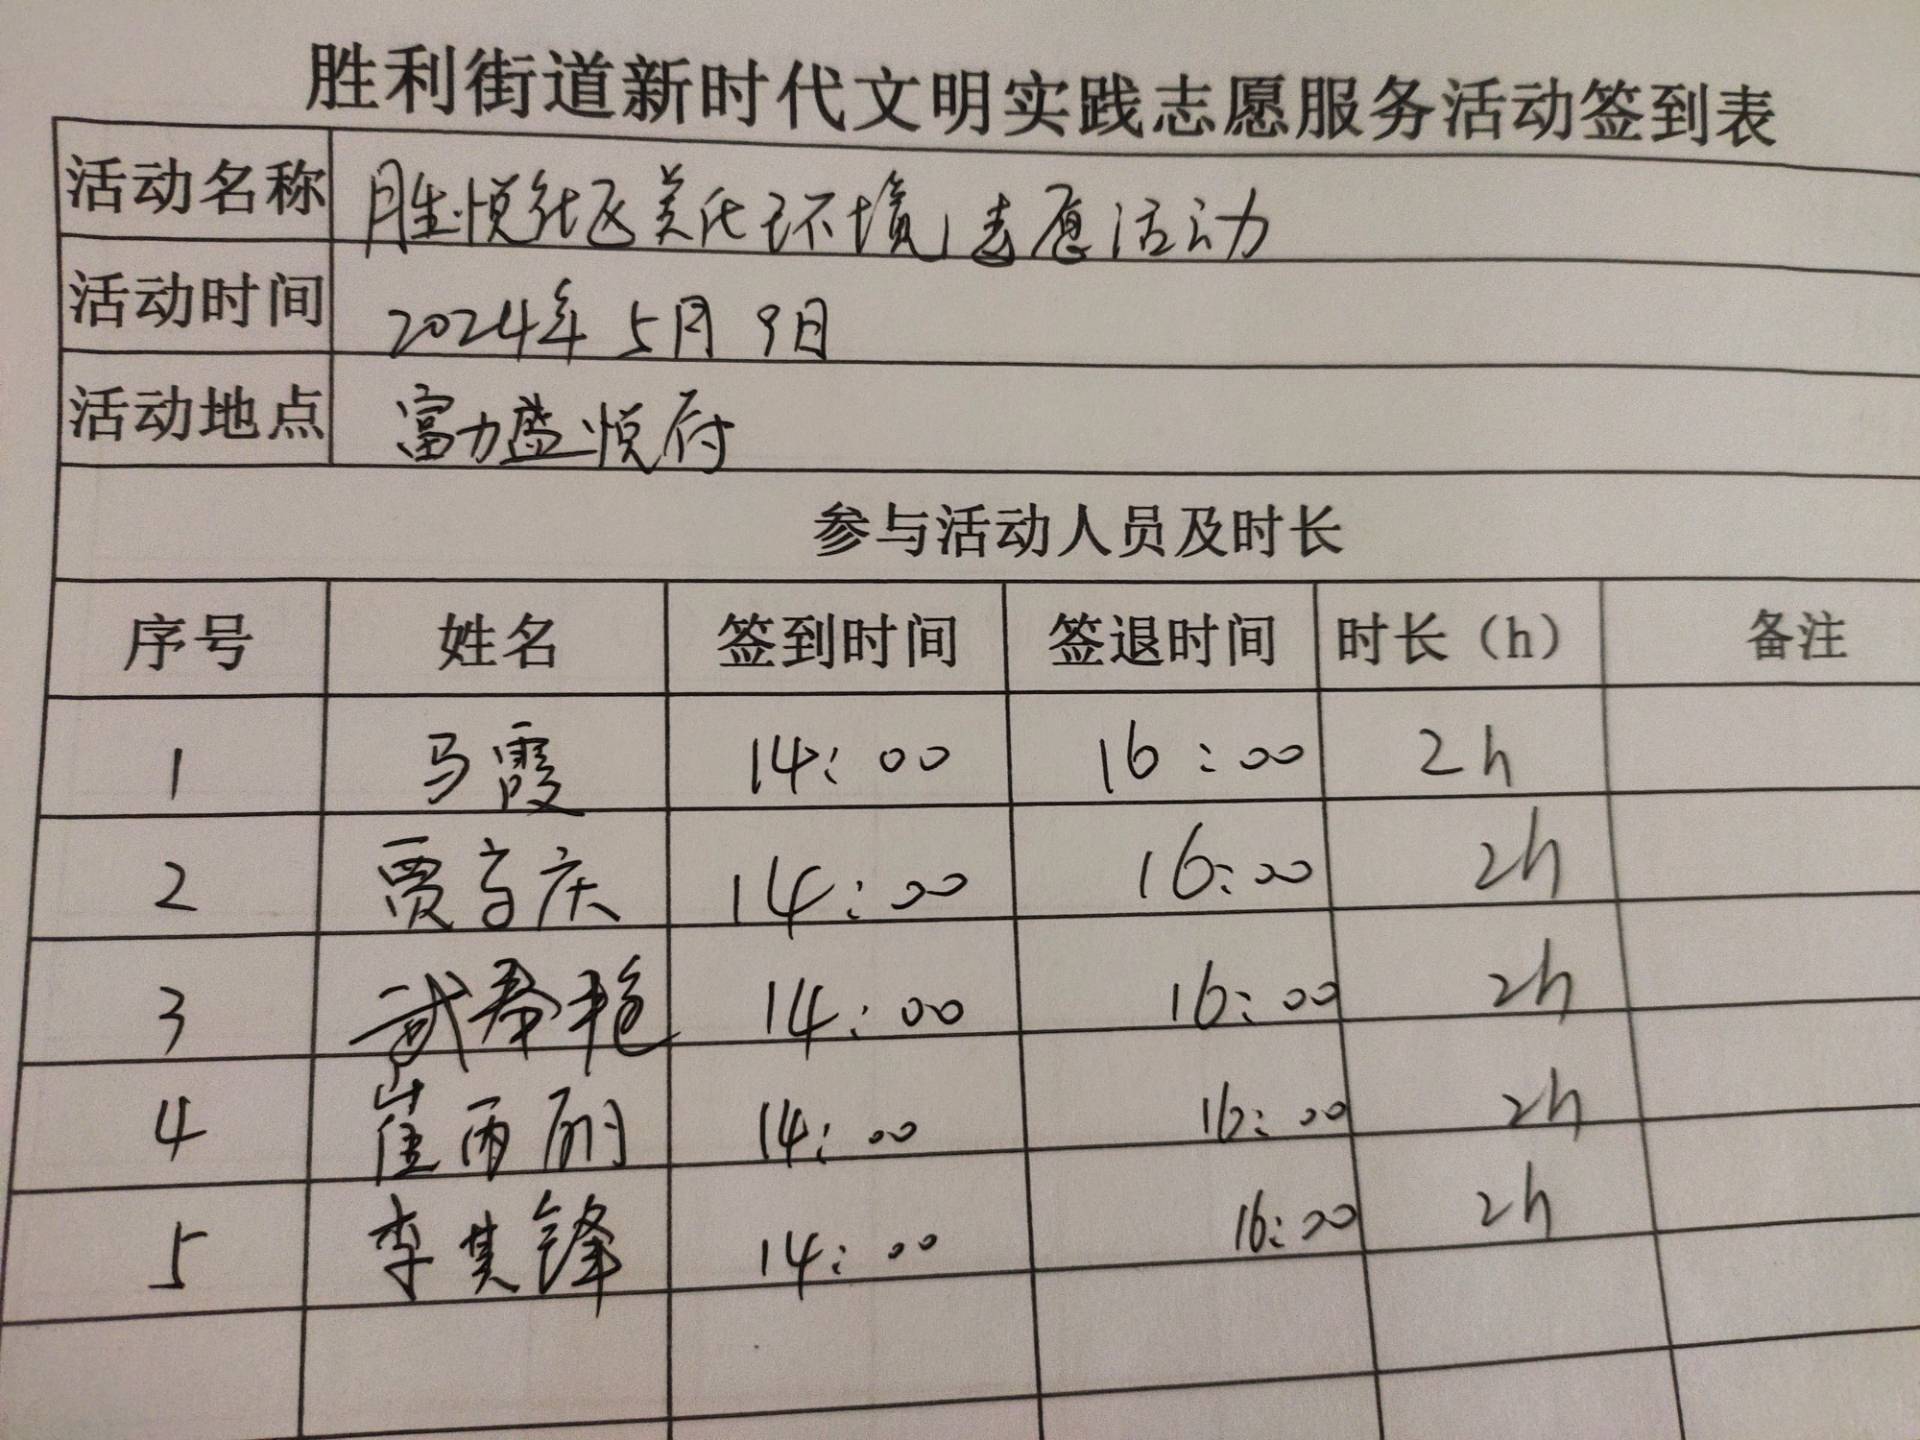 胜利街道新时代文明实践志愿服务活动签到表
活动名称 胜悦社区美化环境志愿活动
活动时间 2024年5月9日
活动地点 富力盛悦府
参与活动人员及时长
序号 姓名 签到时间 签退时间 时长（h） 备注
1 马霞 14：00 16：00 2h
2 贾 庆 14：00 16：00 2h
3 武春艳 14：00 16：00 2h
4 崔丙丽 14：00 16：00 2h
5 李其锋 14：00 16：00 2h